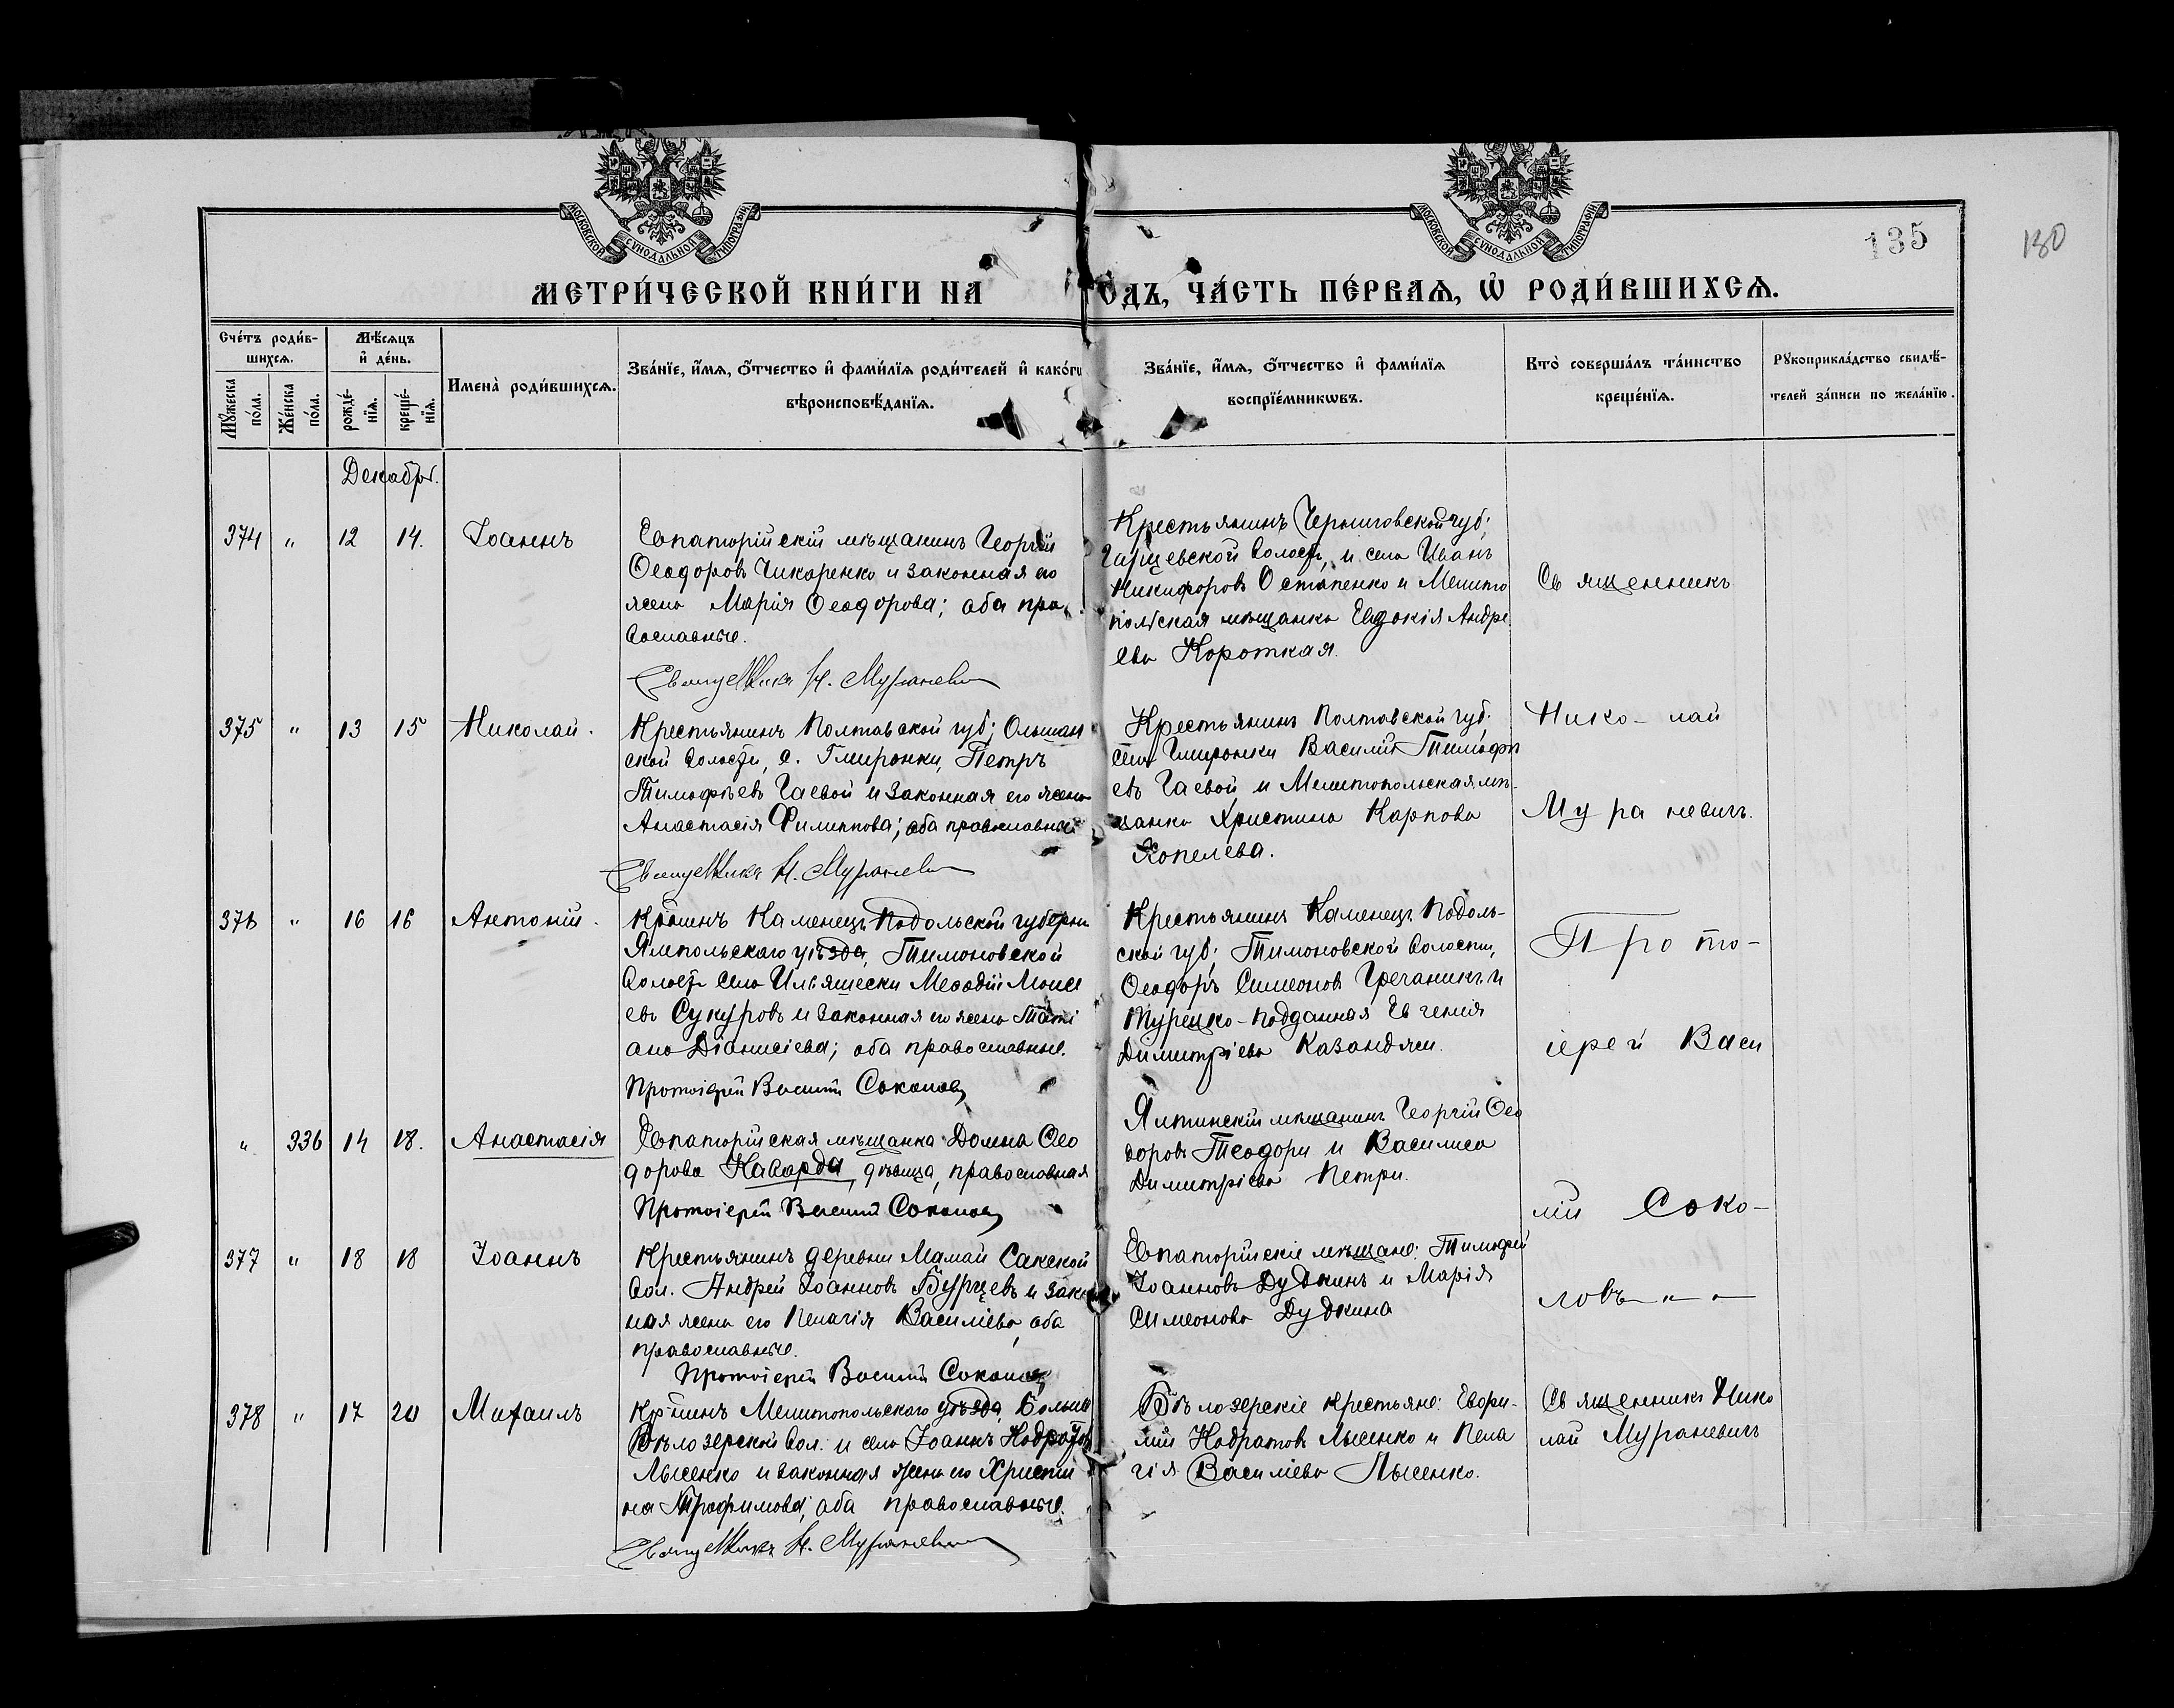 МОСКОВСКОЙ СѴНОДАЛЬНОЙ ТИПОГРАФІИ
МОСКОВСКОЙ СѴНОДАЛЬНОЙ ТИПОГРАФІИ
135
130
МЕТРИ́ЧЕСКОЙ КНИ́ГИ НА
ОДЪ, ЧА́СТЬ ПЕ́РВАѦ, Ѡ РОДИ́ВШИХСѦ.
Сче́тъ роди́в-
шихсѧ.
Мꙋжеска по́ла.
Же́нска по́ла.
Мѣ́сѧцъ
и҆ де́нь.
рожде́-нїѧ.
креще́-нїѧ.
Имена̀ роди́вшихсѧ.
Зва́нїе, и҆́мѧ, ѻ҆́тчество и҆ фами́лїѧ роди́телей и҆ како́гѡ
вѣроисповѣ́данїѧ.
Зва́нїе, и҆́мѧ, ѻ҆́тчество и҆ фами́лїѧ
воспрїе́мникѡвъ.
Кто̀ соверша́лъ та́инство
креще́нїѧ.
Рꙋкоприкла́дство свидѣ́-
телей за́писи по жела́нїю.
Декабрь.
374 " 12 14. Іоаннъ
Евпаторійскій мѣщанинъ Георгій
Ѳеодоровъ Чикаренко и законная его
жена Марія Ѳеодорова; оба пра-
вославные.
Священникъ Н. Мураневичъ
Крестьянинъ Черниговской губ;
волости, и села Иванъ
Никифоровъ Остапенко и Мелито
польская мѣщанка Евдокія Андре
ева Короткая.
Священникъ
375 " 13 15 Николай.
Крестьянинъ Полтавской губ; Ольшан
ской волости, с. Гмиронки, Петръ
Тимофѣевъ Гаевой и законная его жена
Анастасія Филиппова; оба православные
Священникъ Н. Мураневичъ
Крестьянинъ Полтавской губ.
села Гмиронки Василій Тимофѣ
евъ Гаевой и Мелитопольская мѣ-
щанка Христина Карпова
Копелева.
Нико- лай
Му ра невичъ.
376 " 16 16 Антоній.
Кр̃нинъ Каменецъ Подольской губерни
Ямпольскаго уѣзда, Тимоновской
волости села Ильяшески Меѳодій Моисе
евъ Сукуровъ и законная его жена Тати
ана Діонисіева; оба православные.
Протоіерей Василій Соколовъ
Крестьянинъ Каменецъ Подоль-
ской губ; Тимоновской волости,
Ѳеодоръ Симеоновъ Гречанинъ и
Турецко-подданная Евгенія
Димитріева Казанджи.
Про то-
іерей Васи
" 336 14 18. Анастасія
Евпаторійская мѣщанка Домна Ѳео
дорова Каварда, дѣвица, православная
Протоіерей Василій Соколовъ
Ялтинскій мѣщанинъ Георгій Ѳео
доровъ Теодори и Василиса
Димитріева Петри.
лій Соко-
377 " 18 18 Іоаннъ
Крестьянинъ деревни Мамай Сакской
вол. Андрей Іоанновъ Бурцевъ и закон
ная жена его Пелагія Василіева, оба
православные.
Протоіерей Василій Соколовъ
Евпаторійскіе мѣщане: Тимофей
Іоанновъ Дудкинъ и Марія
Симеонова Дудкина
ловъ — " —
378 " 17 20 Михаилъ
Кр̃нинъ Мелитопольскаго уѣзда, Больше
Бѣлозерской вол. и села Іоаннъ Кодратовъ
Лысенко и законная жена его Христи
на Трофимова; оба православные.
Священникъ Н. Мураневичъ
Бѣлозерскіе крестьяне: Евфи-
мій Кодратовъ Лысенко и Пела
гія Василіева Лысенко.
Священникъ Нико
лай Мураневичъ